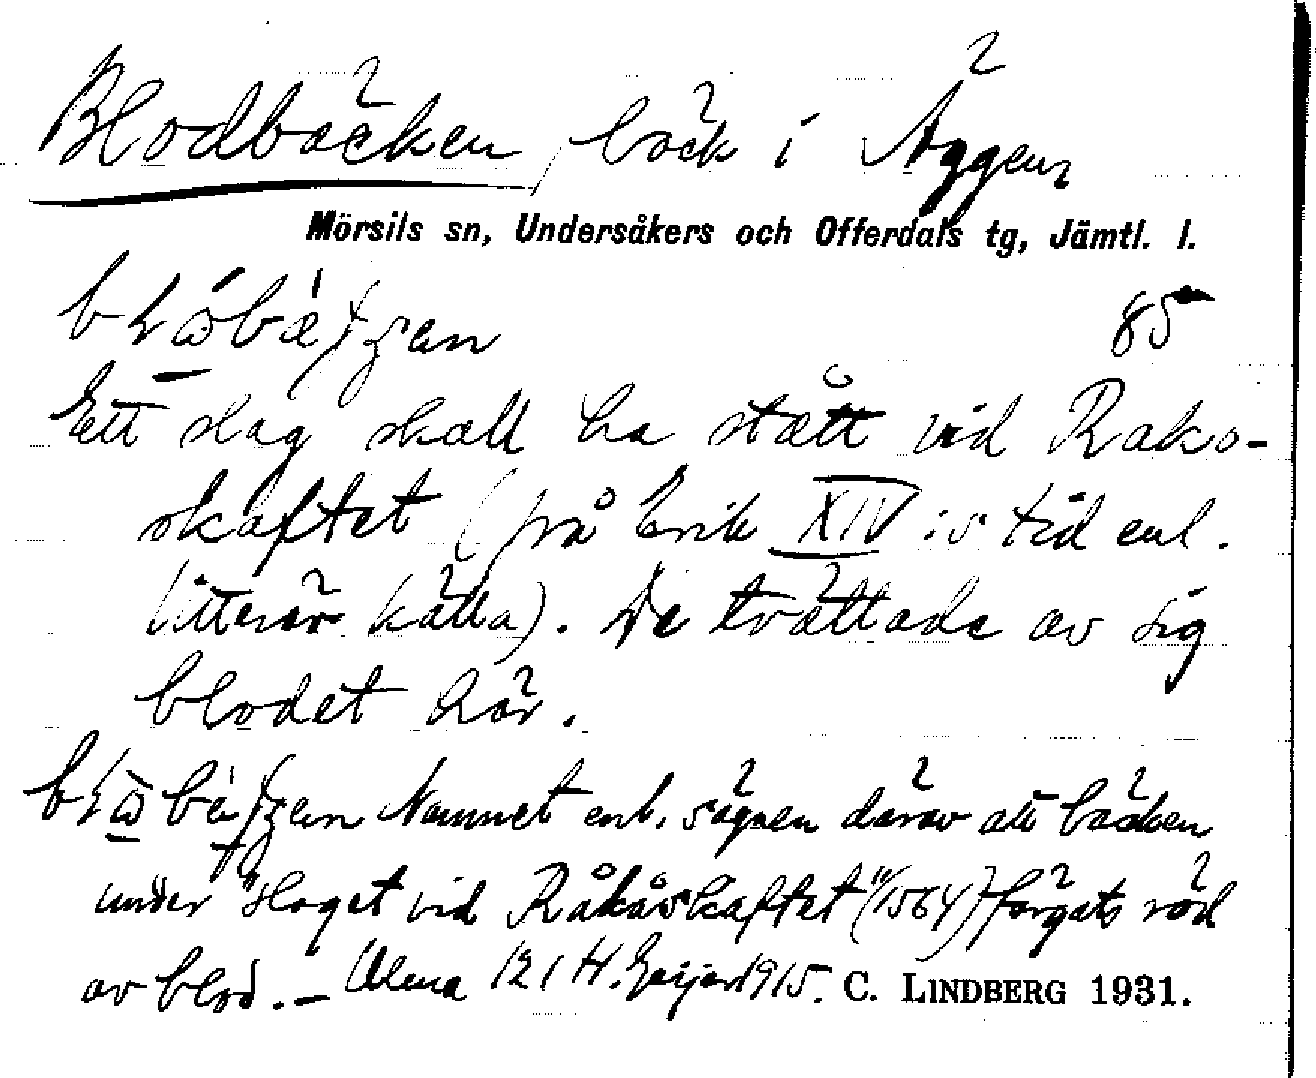 Blodbäcken, bäck i Äggen,
Mörsils sn, Undersåkers och Offerdals tg, Jämtl. l.
85
Ett slag skall ha stått vid Rako-
skaftet (på Erik XIV:s tid enl.
litterär källa). De tvättade av sig
blodet här.
Namnet enl. sägnen därav att bäcken
under "slaget vid Råkåskaftet" (1564) färgats röd
av blod. – 121 H. Geijer 1915. C. LINDBERG 1931.